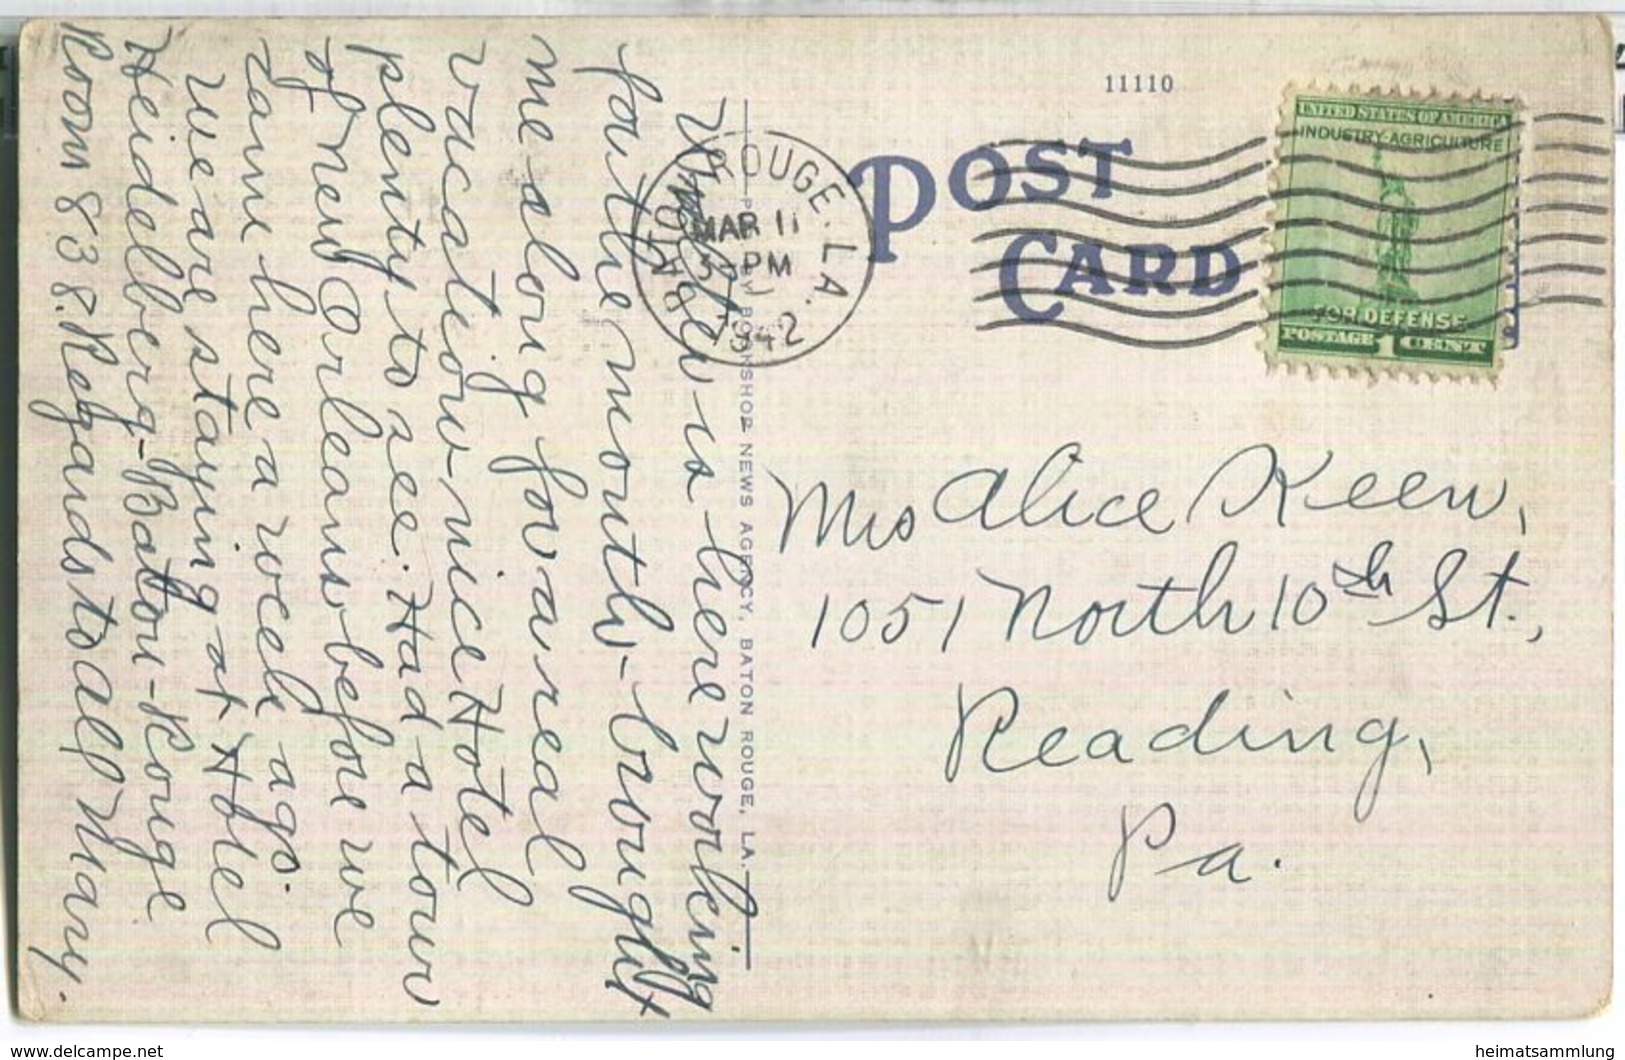 Walter is here working
for the month - brought
me along for a real
vacation - nice Hotel
plenty to see. Had a tour
of New Orleans before we
came here a week ago.
We are staying at Hotel
Heidelberg - Baton - Rouge
Room 838. Regards to all Mary.
BATON ROUGE, LA.
MAR 11
3 - PM
1942
NEWS AGENCY, BATON ROUGE, LA.
11110
POST
CARD
UNITED STATES OF AMERICA
INDUSTRY-AGRICULTURE
FOR DEFENSE
POSTAGE 1 CENT
Mrs Alice Keen,
1051 North 10th St.,
Reading,
Pa.
www.delcampe.net
heimatsammlung